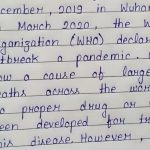 ecember, 2019 in Wuhan
March 2020, the W
ganization (WHO) declar
tbreak a pandemic.
ow a cause of large
eaths across the wor
o proper drug or
een developed for tr
is disease. However,